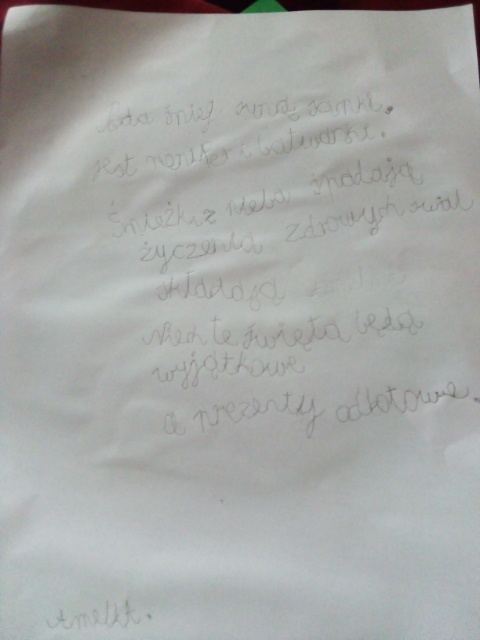 śnieg suną sanki.
jest i bałwanki.
Śnieżki z nieba spadają
życzenia zdrowych świat
składają
Niech te święta będą
wyjątkowe
a prezenty odlotowe.